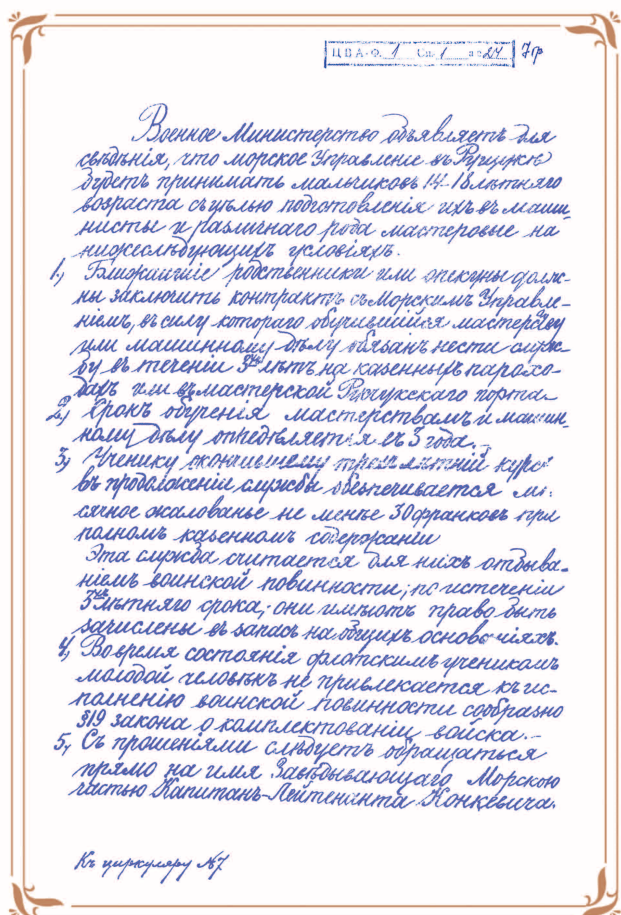 Ц В А - Ф. 1 Оп. 1 а е 24 7ф
Военное Министерство объявляетъ для
свѣдѣнія, что морское Управленіе въ Рущукѣ
будетъ принимать мальчиковъ 14-18 лѣтняго
возраста съ цѣлью подготовленія ихъ въ маши-
нисты и различнаго рода мастеровые на
нижеслѣдующихъ условіяхъ.
1, Ближайшіе родственники или опекуны долж-
ны заключить контрактъ съ Морскимъ Управле-
ніемъ, въ силу котораго обучившійся мастерству
или машинному дѣлу обязанъ нести служ-
бу въ теченіи 5ти лѣтъ на казенныхъ парохо-
дахъ или въ мастерской Рущукскаго порта
2, Срокъ обученія мастерствамъ и машин-
ному дѣлу опредѣляется въ 3 года.-
3, Ученику окончившему трехлѣтній курсъ
въ продолженіи службы обезпечивается мѣ-
сячное жалованье не менѣе 30 франковъ при
полномъ казенномъ содержаніи
Эта служба считается для нихъ отбыва-
ніемъ воинской повинности; по истеченіи
5ти лѣтняго срока, они имѣютъ право быть
зачислены въ запасъ на общихъ основаніяхъ.
4, Во время состоянія флотскимъ ученикомъ
молодой человѣкъ не привлекается къ ис-
полненію воинской повинности сообразно
§19 закона о комплектованіи войска.-
5, Съ прошеніями слѣдуетъ обращаться
прямо на имя Завѣдывающаго Морскою
частью Капитанъ-Лейтенанта Конкевича.
Къ циркуляру №7